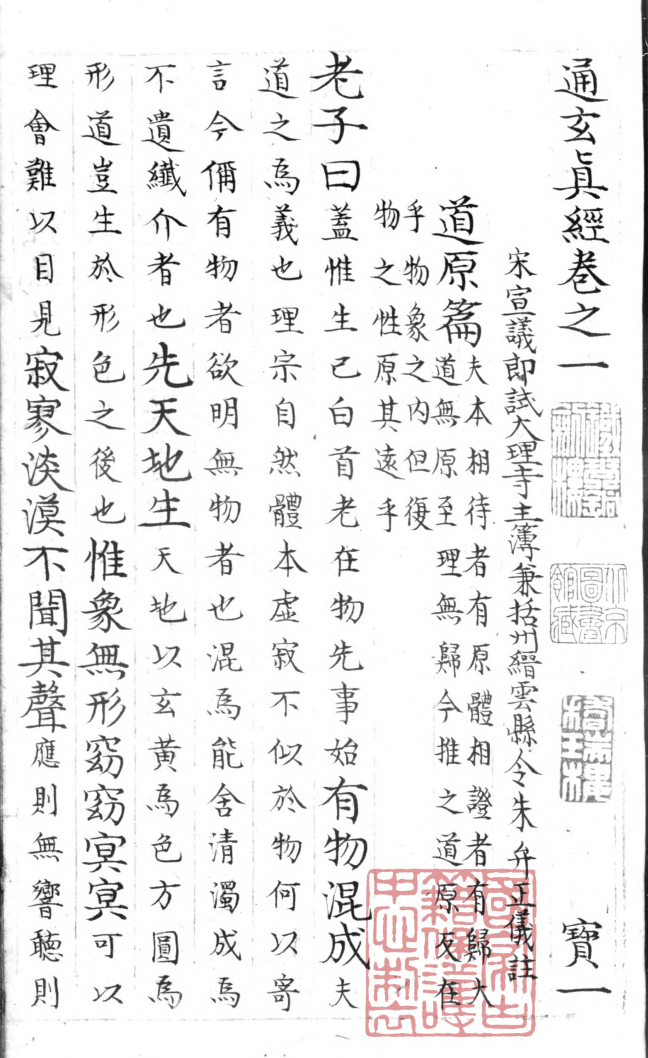 通玄眞經卷之一
寶一
宋宣議郎試大理寺主簿兼括州縉雲縣令朱弁正儀註
道原篇
夫本相待者有原體相證者有歸大
道無原至理無歸今推之道原友在
乎物象之内但復
物之性原其遠乎
老子曰蓋惟生已白首老在物先事始有物混成夫
道之爲義也理宗自然體本虛寂不似於物何以寄
言今偁有物者欲明無物者也混爲能舍清濁成爲
不遺纖介者也先天地生天地以玄黃爲色方圓爲
形道豈生於形色之後也惟象無形窈窈寞寞可以
理會難以目見寂寥淡漠不聞其聲應則無響聽則